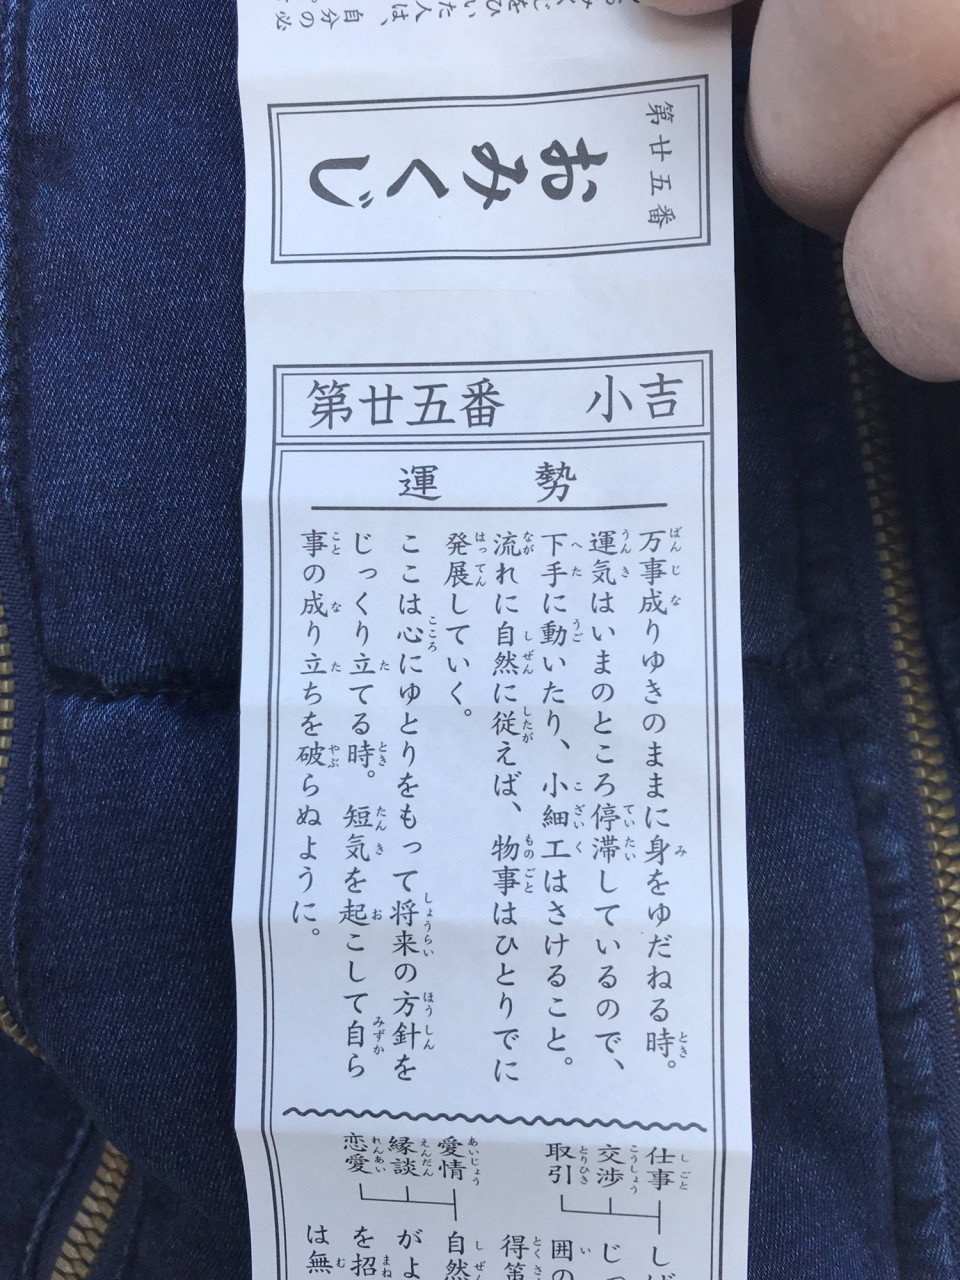 おみくじ
た人は、
自分の
第廿五番
おみくじ
第廿五番　小吉
運　勢
万事成りゆきのままに身をゆだねる時。
運気はいまのところ停滞しているので、
下手に動いたり、小細工はさけること。
流れに自然に従えば、物事はひとりでに
発展していく。
ここは心にゆとりをもって将来の方針を
じっくり立てる時。短気を起こして自ら
事の成り立ちを破らぬように。
仕事
交渉
取引
じっ
囲の
愛情
縁談
恋愛
自然
がよ
を招
は無